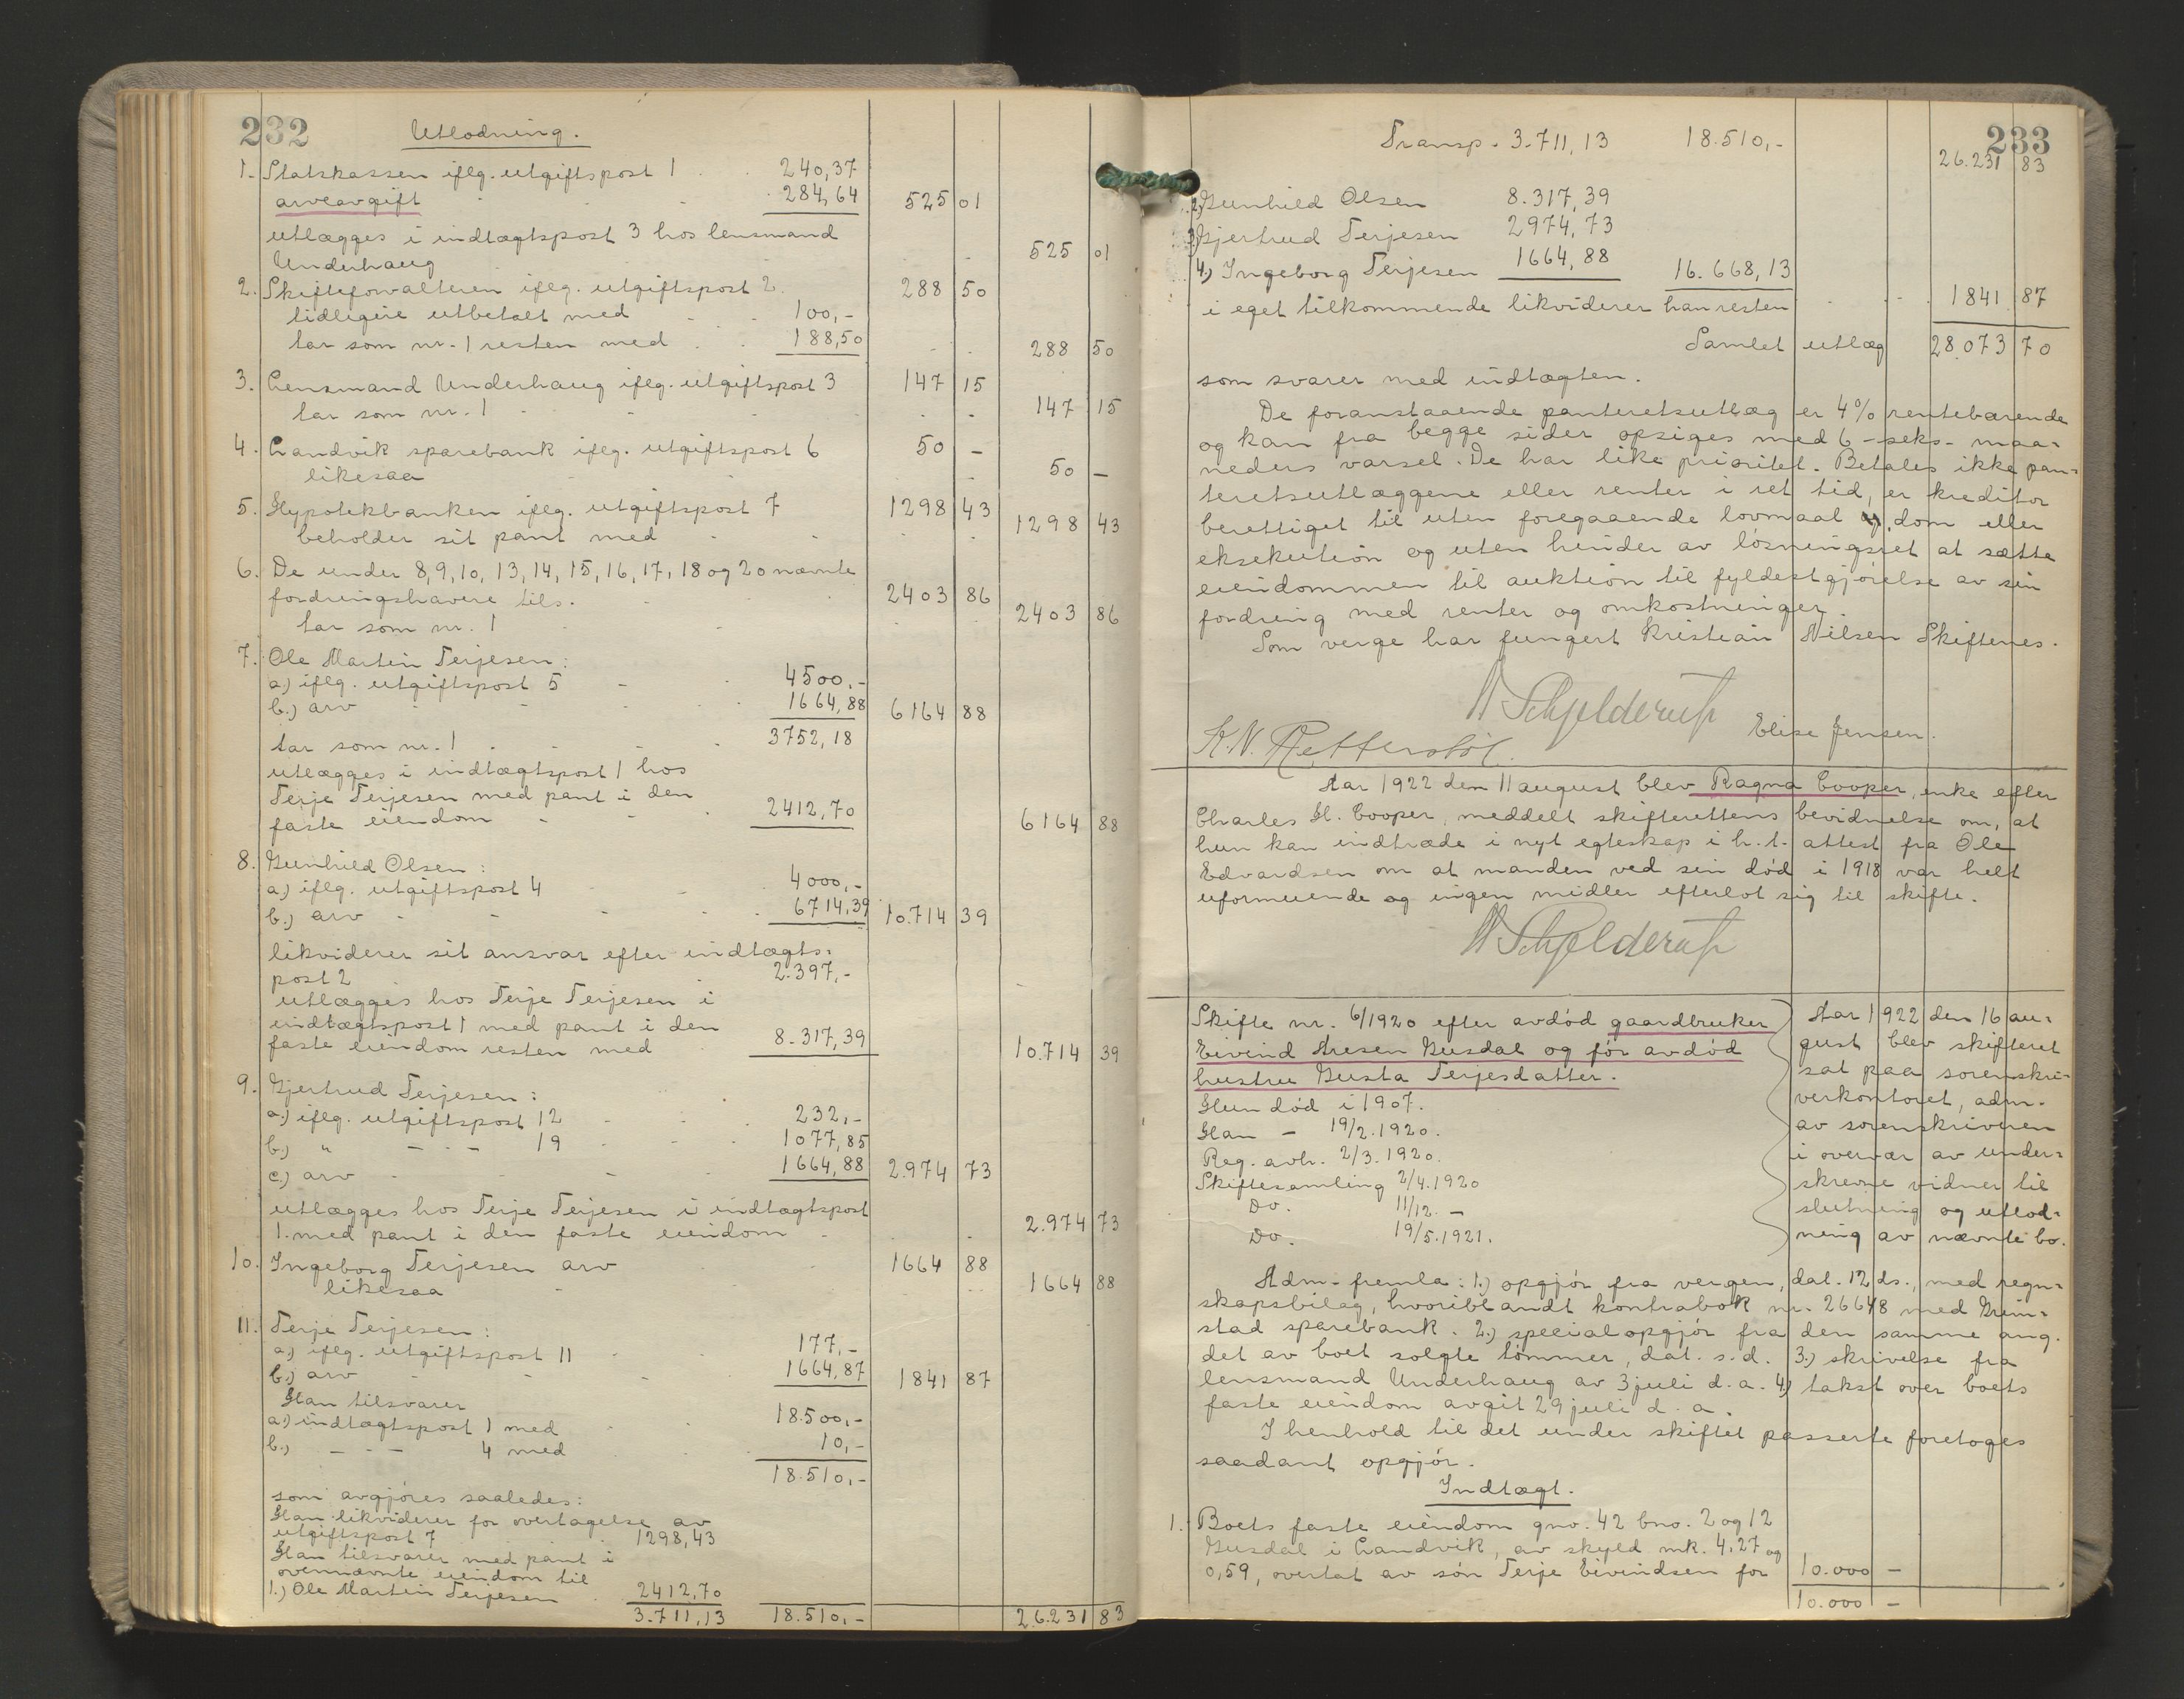 232
Utlodning.
1. Statskassen iflg. utgiftspost 1 . . 240,37
arveavgift . . . 284,64 525 01
utlægges i indtægtspost 3 hos lensmand
Underhaug . . 525 01
2. Skifteforvalteren iflg. utgiftspost 2. 288 50
tidligere utbetalt med . . 100,-
tar som nr. 1 resten med . . 188,50 288 50
3. Lensmand Underhaug iflg. utgiftspost 3 147 15
tar som nr. 1 147 15
4. Landvik sparebank iflg. utgiftspost 6 50 -
likesaa 50 -
5. Hypotekbanken iflg. utgiftspost 7 1298 43
beholder sit pant med 1298 43
6. De under 8, 9, 10, 13, 14, 15, 16, 17, 18 og 20 nævnte
fordringshavere tils. 2403 86
tar som nr. 1 2403 86
7. Ole Martin Terjesen:
a) iflg. utgiftspost 5 4500,-
b.) arv 1664,88 6164 88
tar som nr. 1 3752,18
utlægges i indtægtspost 1 hos
Terje Terjesen med pant i den
faste eiendom 2412,70 6164 88
8. Gunhild Olsen:
a) iflg. utgiftspost 4 4000,-
b.) arv 6714,39 10.714 39
likviderer sit ansvar efter indtægts=
post 2 2.397,-
utlægges hos Terje Terjesen i
indtægtspost 1 med pant i den
faste eiendom resten med 8.317,39 10.714 39
9. Gjertrud Terjesen:
a.) iflg. utgiftspost 12 232,-
b.) " - - - 19 1077,85
c.) arv 1664,88 2.974 73
utlægges hos Terje Terjesen i indtægtspost
1. med pant i den faste eiendom 2.974 73
10. Ingeborg Terjesen arv 1664 88
likesaa 1664 88
11. Terje Terjesen:
a) iflg. utgiftspost 11 177,-
b.) arv 1664,87 1841 87
Han tilsvarer
a.) indtægtspost 1 med 18.500,-
b.) - - - 4 med 10,-
18.510,-
som avgjøres saaledes:
Han likviderer for overtagelse av
utgiftspost 7 1298,43
Han tilsvarer med pant i
ovennævnte eiendom til
1.) Ole Martin Terjesen 2412,70
3.711,13 18.510,- 26.231 83
233
Transp. 3.711,13 18.510,- 26.231 83
2.) Gunhild Olsen 8.317,39
3.) Gjertrud Terjesen 2974,73
4.) Ingeborg Terjesen 1664,88 16.668,13
i eget tilkommende likviderer han resten 1841 87
Samlet utlæg 28.073 70
som svarer med indtægten.
De foranstaaende panteretsutlæg er 4% rentebærende
og kan fra begge sider opsiges med 6 - seks - maa=
neders varsel. De har like prioritet. Betales ikke pan=
teretsutlæggene eller renter i ret tid, er kreditor
berettiget til uten foregaaende lovmaal og dom eller
eksekution og uten hinder av løsningsret at sætte
eiendommen til auktion til fyldestgjørelse av sin
fordring med renter og omkostninger.
Som verge har fungert Kristian Nilsen Skiftenes.
Schjelderup
K. N. Retterstøl. Elise Jensen.
Aar 1922 den 11 august blev Ragna Cooper, enke efter
Charles H. Cooper, meddelt skifterettens bevidnelse om, at
hun kan indtræde i nyt egteskap i h. t. attest fra Ole
Edvardsen om at manden ved sin død i 1918 var helt
uformuende og ingen midler efterlot sig til skifte.
Schjelderup
Skifte nr. 6/1920 efter avdød gaardbruker
Eivind Aresen Gusdal og før avdød
hustru Gusta Terjesdatter.
Hun død i 1907.
Han - 19/2.1920.
Reg. avh. 2/3.1920.
Skiftesamling 2/4.1920
Do. 11/12. -
Do. 19/5.1921.
Aar 1922 den 16 au=
gust blev skifteret
sat paa sorenskri=
verkontoret, adm.
av sorenskriveren
i overvær av under=
skrevne vidner til
slutning og utlod=
ning av nævnte bo.
Adm. fremla: 1.) opgjør fra vergen, dat. 12 ds., med regn=
skapsbilag, hvoriblandt kontrabok nr. 26648 med Grim=
stad sparebank. 2.) specialopgjør fra den samme ang.
det av boet solgte tømmer, dat. s. d. 3.) skrivelse fra
lensmand Underhaug av 3 juli d. a. 4) takst over boets
faste eiendom avgit 29 juli d. a.
I henhold til det under skiftet passerte foretoges
saadant opgjør.
Indtægt.
1. Boets faste eiendom gno. 42 bno. 2 og 12
Gusdal i Landvik, av skyld mk. 4,27 og
0,59, overtat av søn Terje Eivindsen for 10.000 -
10.000 -